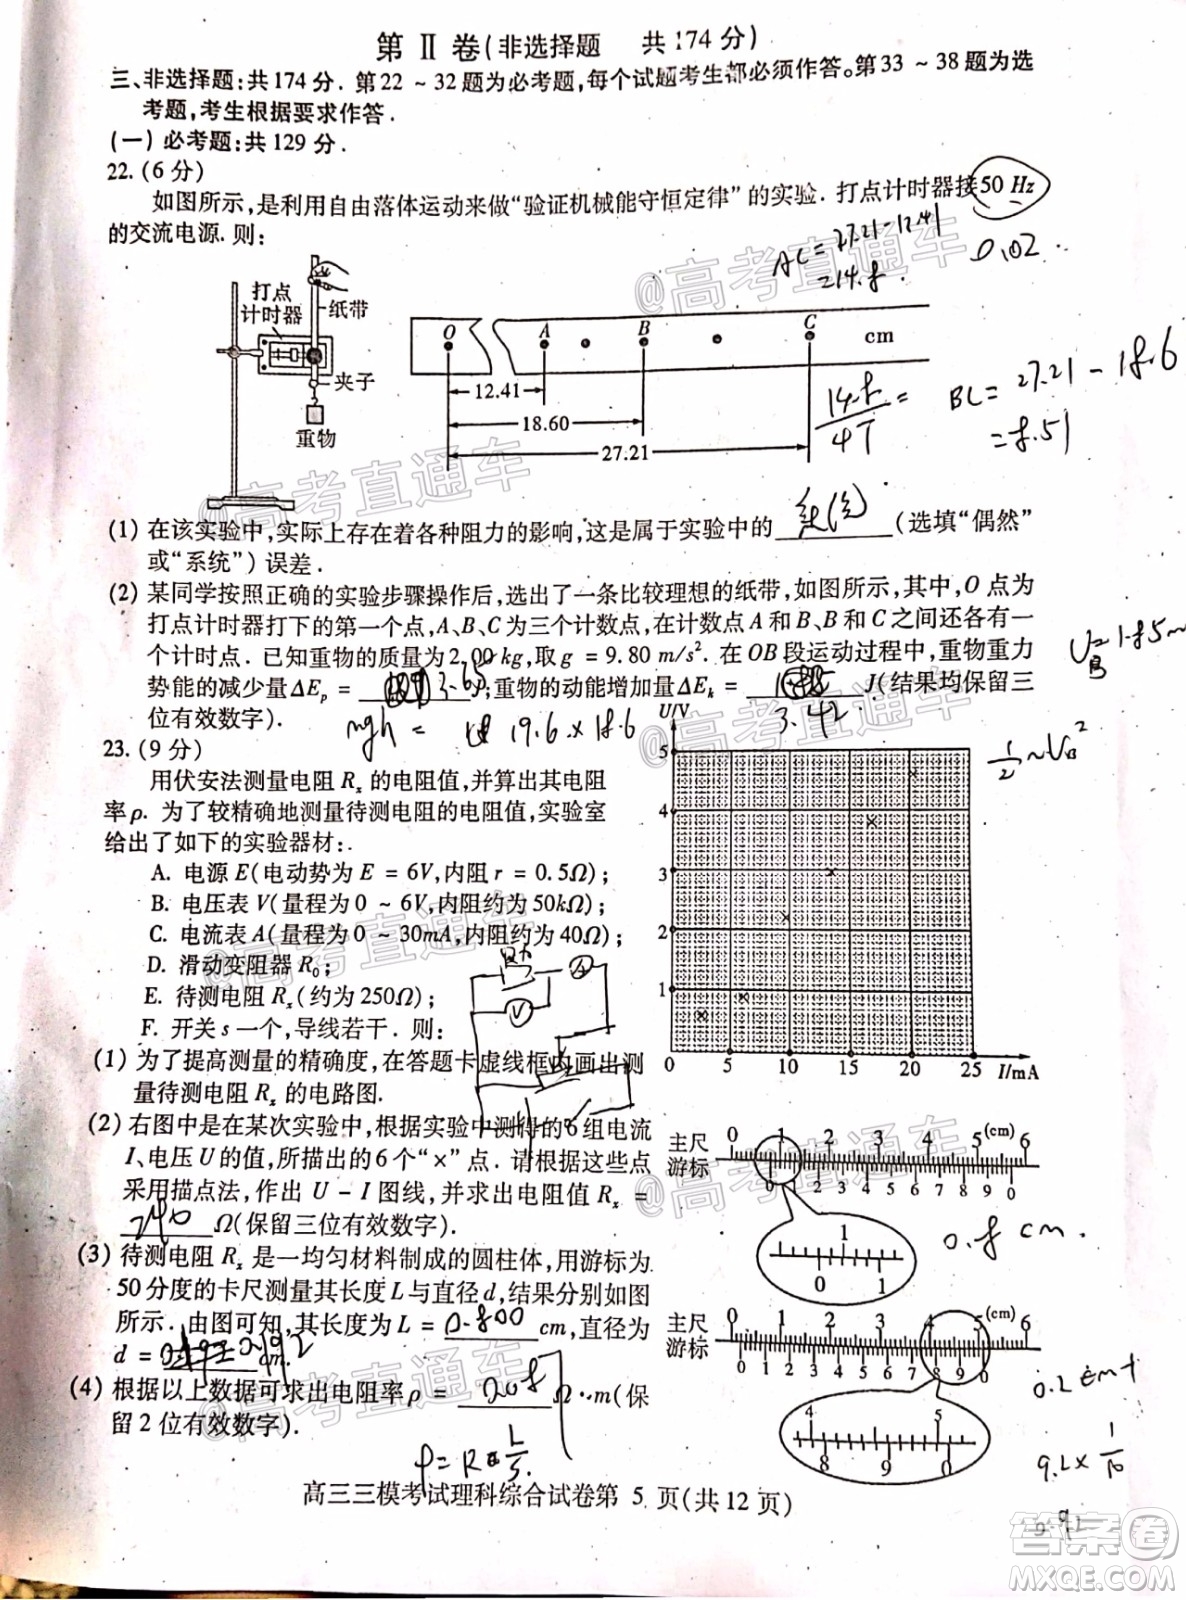 第Ⅱ卷(非选择题 共174分)
三、非选择题:共174分.第22~32题为必考题,每个试题考生都必须作答。第33~38题为选
考题,考生根据要求作答.
(一)必考题:共129分.
22.(6分)
如图所示,是利用自由落体运动来做“验证机械能守恒定律”的实验.打点计时器接50 Hz
的交流电源.则:
AC=27.21-12.41
=14.8.
0.02
打点
计时器
纸带
夹子
重物
O A B C cm
12.41
18.60
27.21
14.8
4T
=
BC=27.21-18.6
=8.51
(1)在该实验中,实际上存在着各种阻力的影响,这是属于实验中的 系统 (选填“偶然”
或“系统”)误差.
(2)某同学按照正确的实验步骤操作后,选出了一条比较理想的纸带,如图所示,其中,O点为
打点计时器打下的第一个点,A、B、C为三个计数点,在计数点A和B、B和C之间还各有
一个计时点.已知重物的质量为2.00kg,取g=9.80m/s².在OB段运动过程中,重物重力
势能的减少量ΔEp= 3.65 J;重物的动能增加量ΔEk= J(结果均保留三
位有效数字).
3.42
mgh= 19.6×18.6
23.(9分)
用伏安法测量电阻Rx的电阻值,并算出其电阻
率ρ.为了较精确地测量待测电阻的电阻值,实验室
给出了如下的实验器材:
A.电源E(电动势为E=6V,内阻r=0.5Ω);
B.电压表V(量程为0~6V,内阻约为50kΩ);
C.电流表A(量程为0~30mA,内阻约为40Ω);
D.滑动变阻器R0;
E.待测电阻Rx(约为250Ω);
F.开关s一个,导线若干.则:
U/V
5
4
3
2
1
0 5 10 15 20 25 I/mA
A
V
(1)为了提高测量的精确度,在答题卡虚线框内画出测
量待测电阻Rx的电路图.
(2)右图中是在某次实验中,根据实验中测得的6组电流
I、电压U的值,所描出的6个“×”点.请根据这些点
采用描点法,作出U-I图线,并求出电阻值Rx=
240 Ω(保留三位有效数字).
(3)待测电阻Rx是一均匀材料制成的圆柱体,用游标为
50分度的卡尺测量其长度L与直径d,结果分别如图
所示.由图可知,其长度为L= 0.800 cm,直径为
d= cm.
(4)根据以上数据可求出电阻率ρ= Ω·m(保
留2位有效数字).
主尺 0 1 2 3 4 5(cm)6
游标 0 1 2 3 4 5 6 7 8 9 0
1
0 1
0.8 cm.
主尺 0 1 2 3 4 5(cm)6
游标 0 1 2 3 4 5 6 7 8 9 0
4 5
8 9 0
高三三模考试理科综合试卷第 5 页(共12页)
@高考直通车
@高考直通车
@高考直通车
@高考直通车
@高考直通车
@高考直通车
答案卷
MXQE.COM